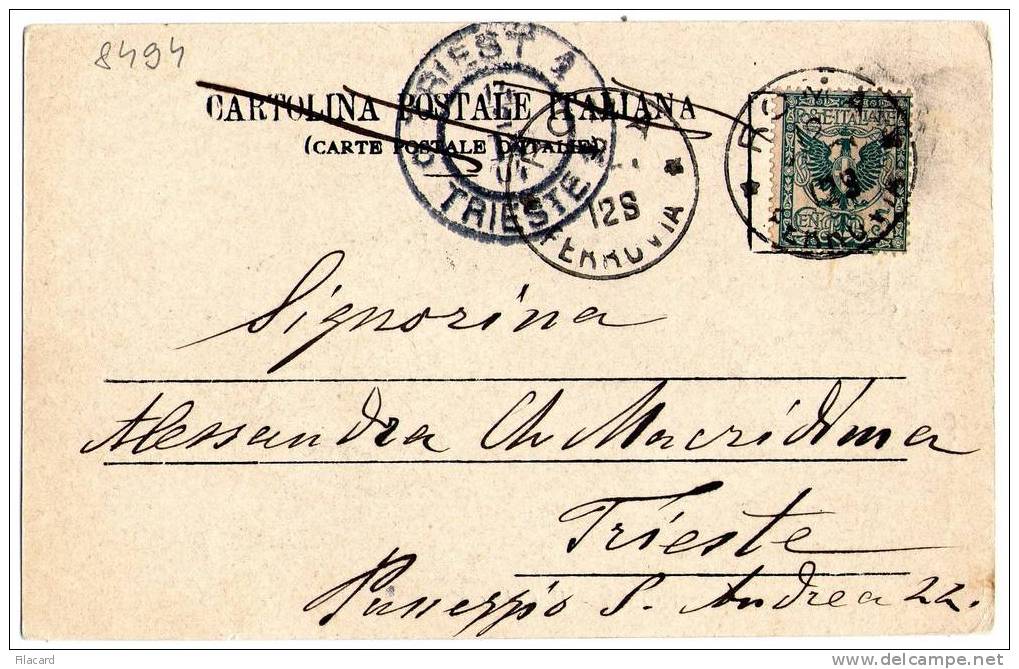 8494
CARTOLINA POSTALE ITALIANA
(CARTE POSTALE D'ITALIE)
TRIEST 1
TRIESTE 1
12 S
FERROVIA
ROMA
FERROVIA
POSTE ITALIANE
Signorina
Alessandra Ch Macridima
Trieste
Passeggio S. Andrea 22.
Filacard
delcampe.net